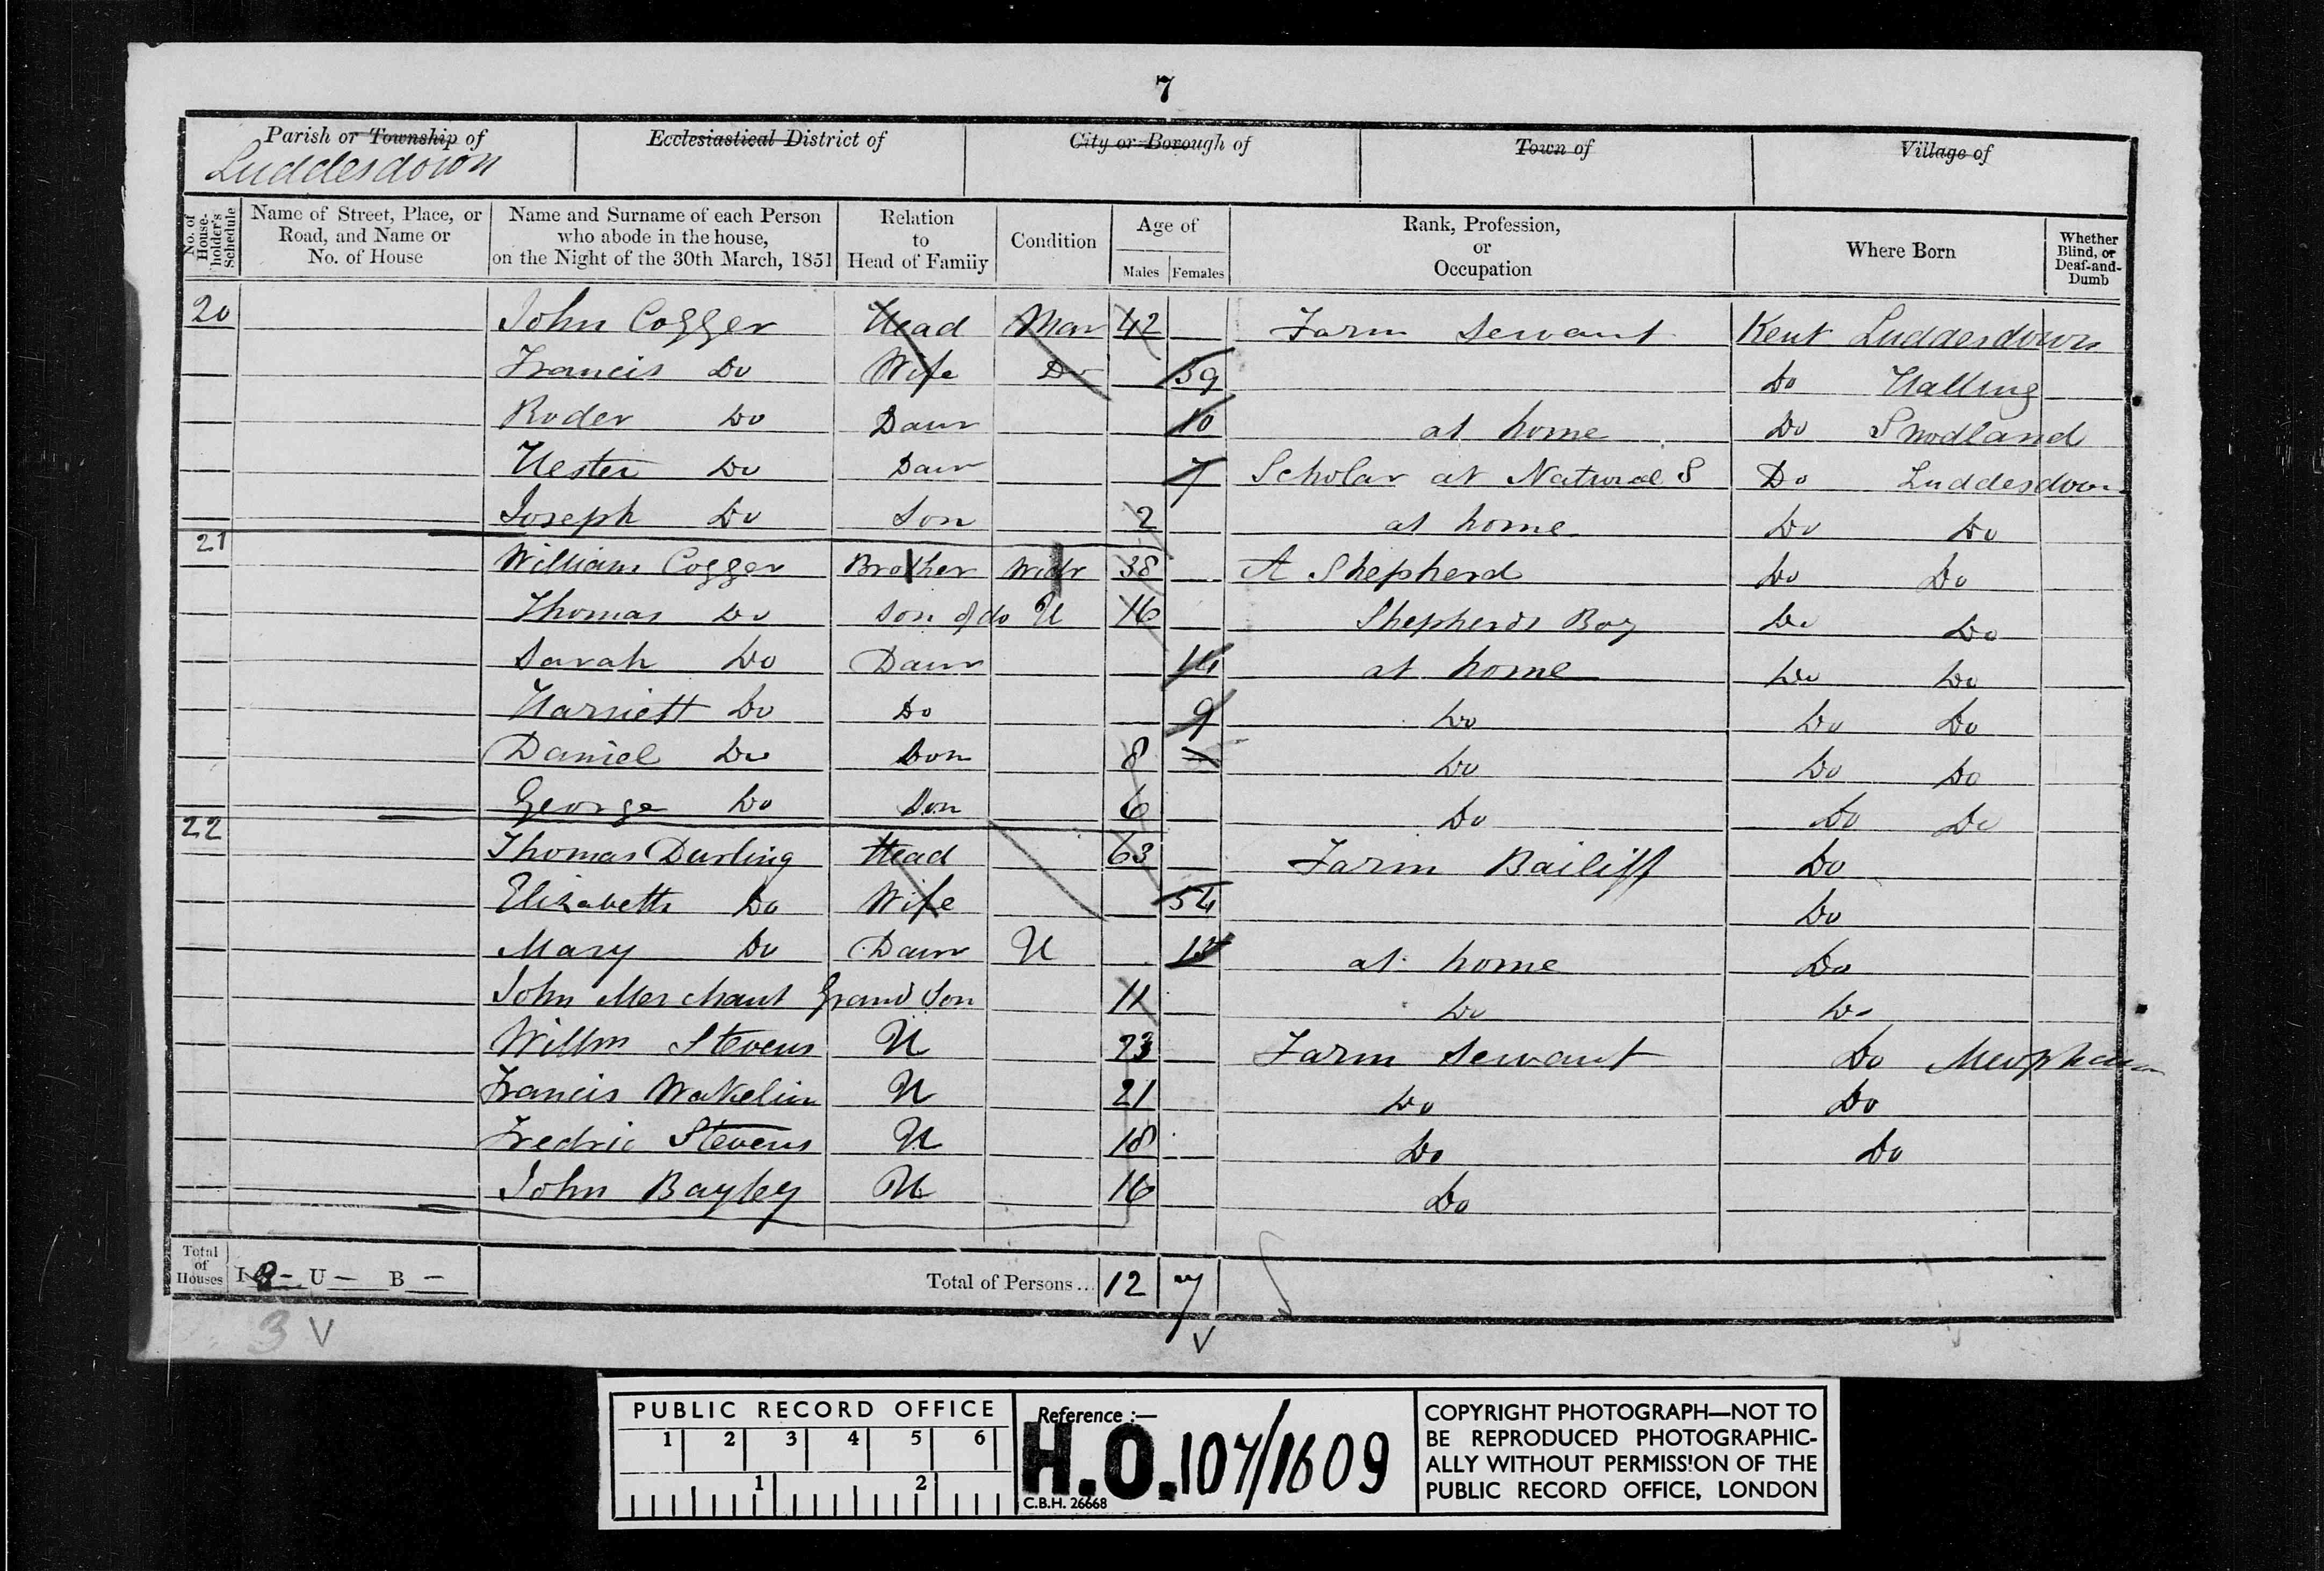 7
Parish or Township of Ecclesiastical District of City or Borough of Town of Village of
Luddesdown
No. of House-holder's Schedule Name of Street, Place, or Road, and Name or No. of House Name and Surname of each Person who abode in the house, on the Night of the 30th March, 1851 Relation to Head of Family Condition Age of Males Females Rank, Profession, or Occupation Where Born Whether Blind, or Deaf-and-Dumb
20 John Cogger Head Mar 42 Farm Servant Kent Luddesdown
Francis Do Wife Do 39 Do Halling
Roder Do Daur 10 at home Do Snodland
Hester Do Daur 7 Scholar at National S Do Luddesdown
Joseph Do Son 2 at home Do Do
21 William Cogger Brother Widr 38 A Shepherd Do Do
Thomas Do Son of do U 16 Shepherds Boy Do Do
Sarah Do Daur 14 at home Do Do
Harriett Do Do 9 Do Do Do
Daniel Do Son 8 Do Do Do
George Do Son 6 Do Do Do
22 Thomas Durling Head 63 Farm Bailiff Do
Elizabeth Do Wife 54 Do
Mary Do Daur U at home Do
John Merchant Grand Son 11 Do Do
Willm Stevens U 23 Farm Servant Do Meopham
Francis Wakelin U 21 Do Do
Fredric Stevens U 18 Do Do
John Bayley U 16 Do
Total of Houses I U — B — Total of Persons... 12 7
3 V V
PUBLIC RECORD OFFICE
1 2 3 4 5 6
1 2
Reference :—
H.O. 107/1609
C.B.H. 26668
COPYRIGHT PHOTOGRAPH—NOT TO
BE REPRODUCED PHOTOGRAPHIC-
ALLY WITHOUT PERMISSION OF THE
PUBLIC RECORD OFFICE, LONDON